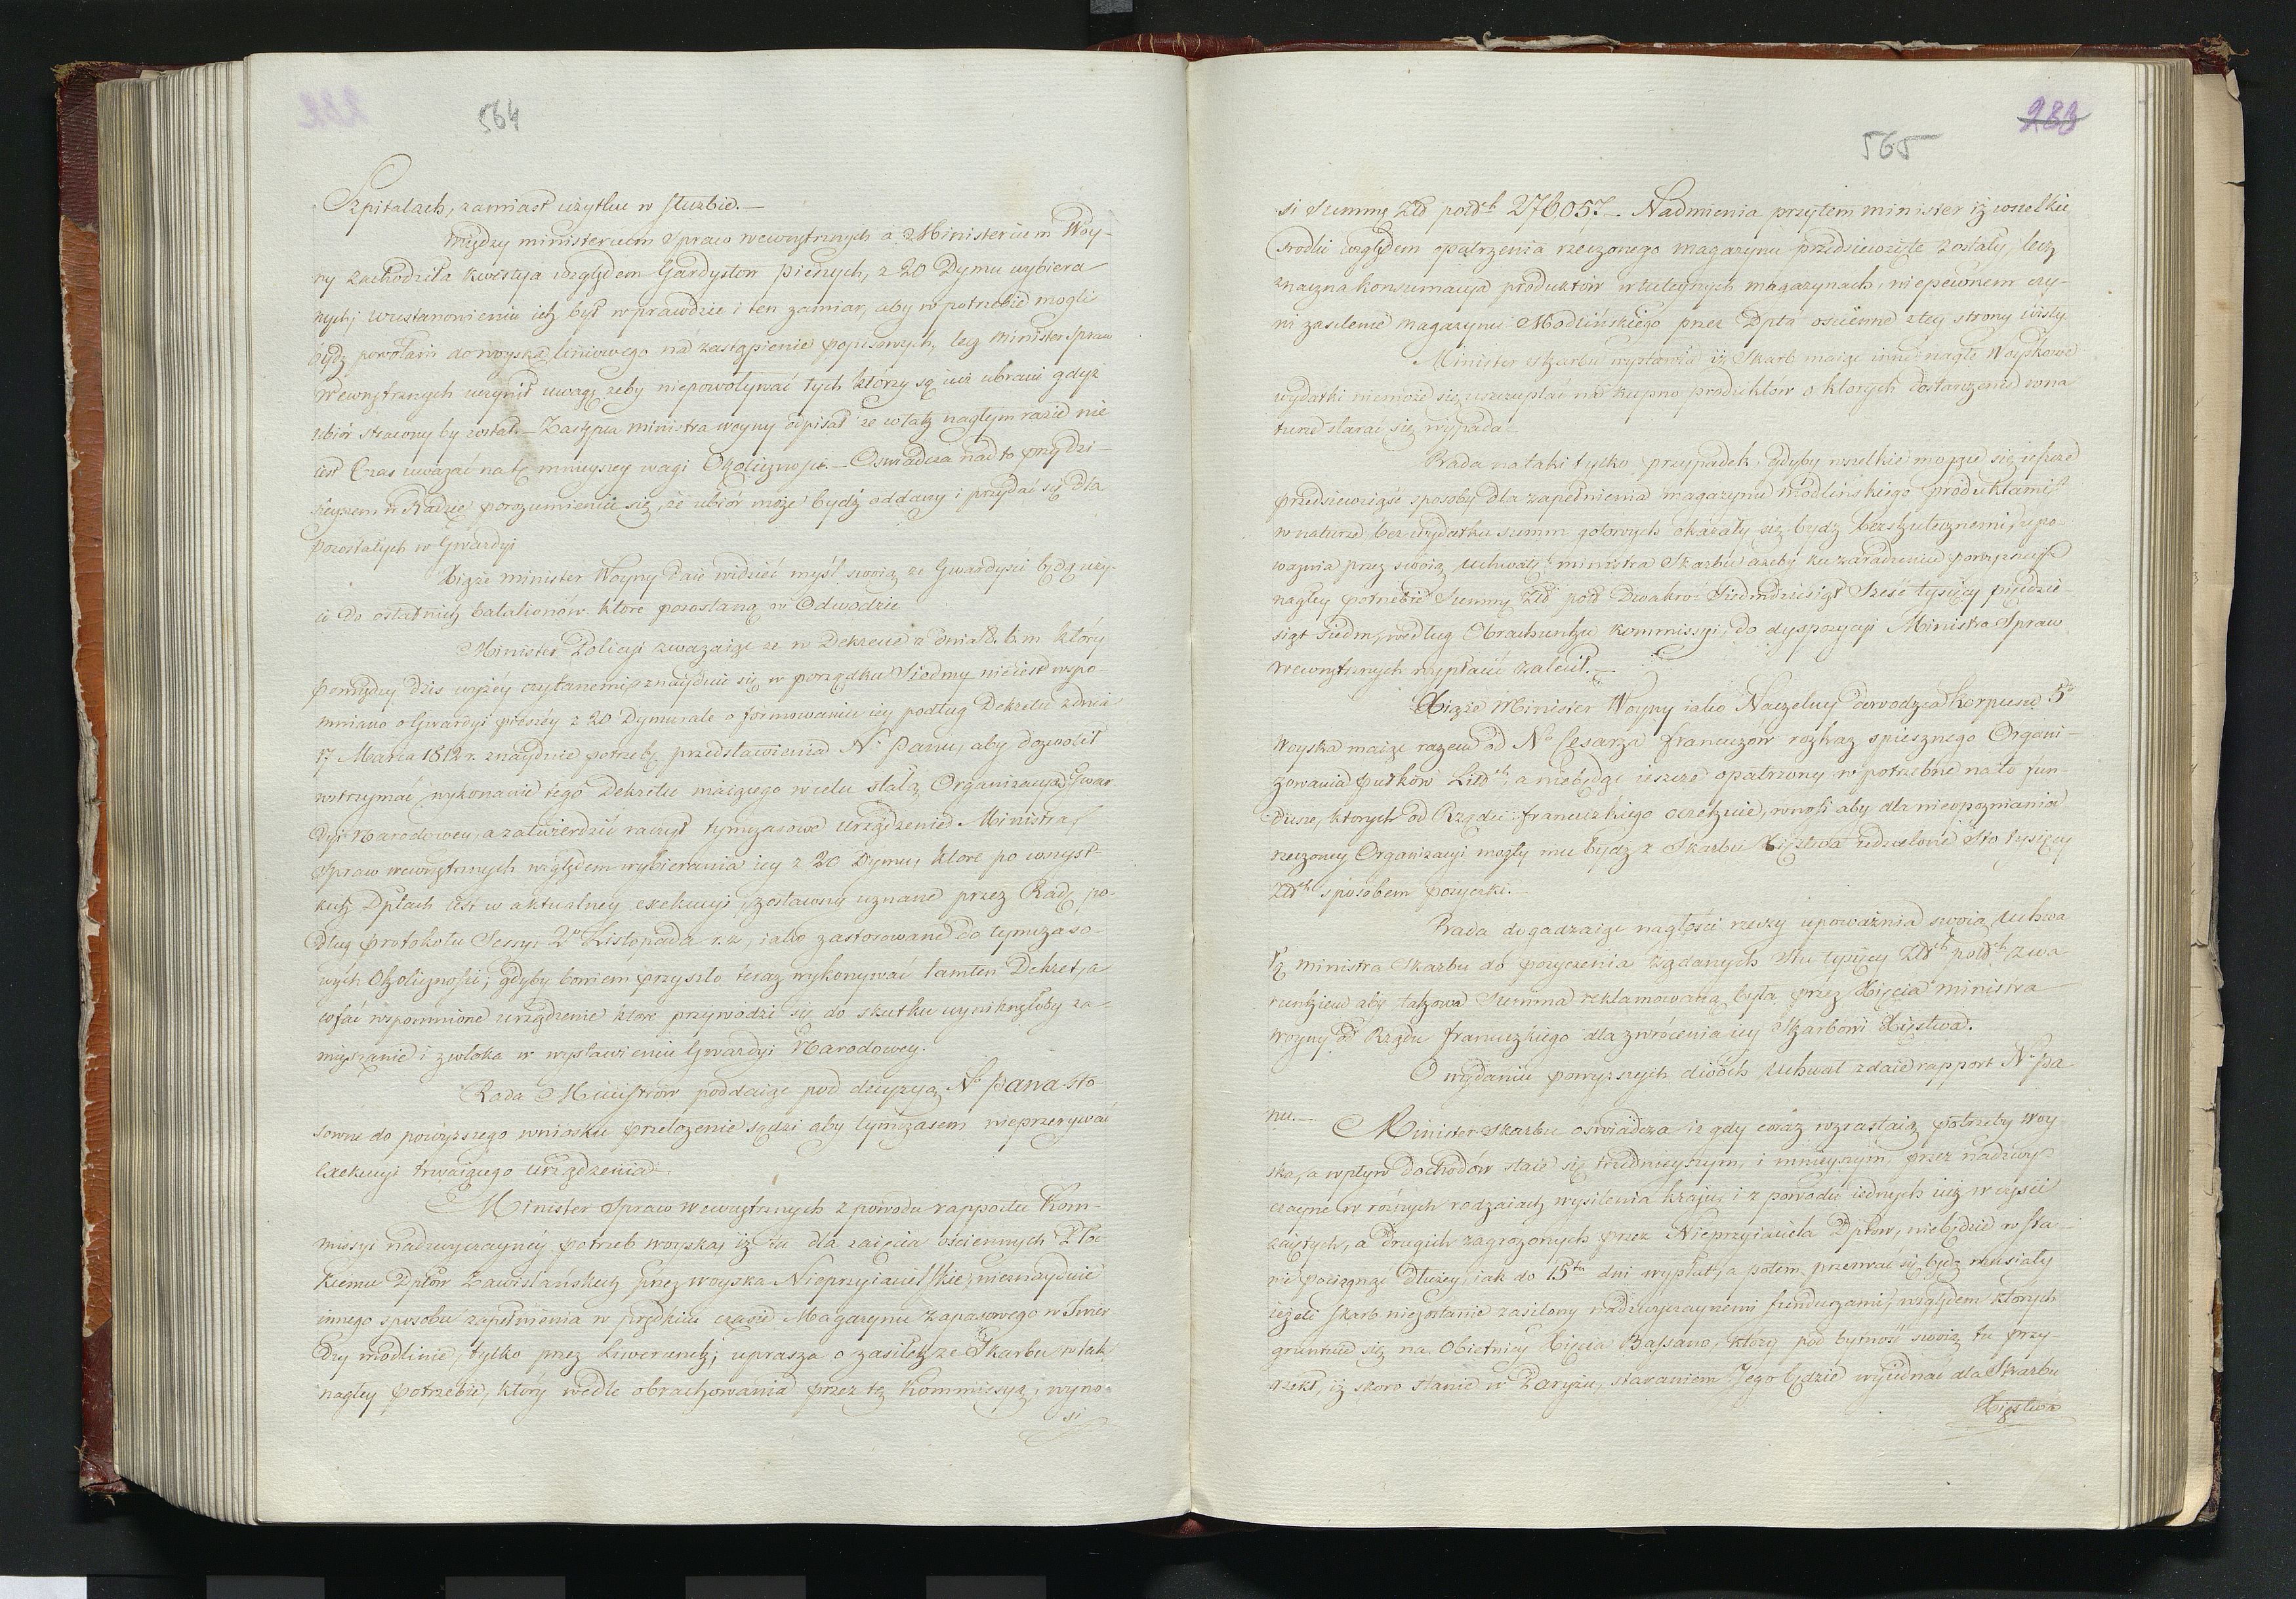 564
Szpitalach, zamiast użytku w służbie.—
Między ministerium Spraw wewnętrznych a Ministerium Woy-
ny zachodziła kwestya względem Gardystow pieszych, z 20 Dymu wybiera
nych; w ustanowieniu ich był wprawdzie i ten zamiar, aby w potrzebie mogli
bydz powołani do woyska liniowego na zastąpienie popisowych, lecz minister Spraw
Wewnętrznych uczynił uwagę żeby niepowoływać tych którzy są iuż ubrani gdyż
ubiór stracony by został.— Zastępca ministra woyny odpisał że w tak nagłym razie nie
iest Czas uważać na tę mnieyszey wagi Okoliczność.— Oswiadcza nad to
w Radzie porozumieniu się, że ubiór może bydź oddany i przydać się dla
pozostałych w Gwardyi
Xiąże minister Woyny daie widzieć myśl swoią że Gwardyści będą uży-
ci do ostatnich batalionów które pozostaną w Odwodzie
Minister Policyi zważaiąc że w Dekrecie z dnia 8. b. m. który
pomiędzy dziś wyżey czytanemi znayduie się w porządku Siodmy nie iest wspo-
mniano o Gwardyi pieszéy z 20 Dymu, ale o formowaniu iey podług Dekretu z dnia
17 Marca 1812 r. znayduie potrzebę przedstawienia N. Panu, aby dozwolił
wstrzymać wykonanie tego Dekretu maiącego w celu stałą Organizacyą Gwar
dyi Narodowey, a zatwierdzić raczył tymczasowe urządzenie Ministra
Spraw wewnętrznych względem wybierania iey z 20 Dymu, które po wszyst-
kich Dptach iest w aktualney exekucyi, zostawszy uznane przez Radę, po-
dług protokołu Sessyi 2 Listopada r. z., iako zastosowane do tymczaso-
wych Okoliczności; gdyby bowiem przyszło teraz wykonywać tamten Dekret, a
cofać wspomnione urządzenie które przywodzi się do skutku wyniknęłoby za-
mięszanie i zwłoka w wystawieniu Gwardyi Narodowey.
Rada Ministrów poddaiąc pod decyzyą N. Pana sto-
sowne do powyższego wniosku przełożenie sądzi aby tymczasem nieprzerywać
Exekucyi trwaiącego urządzenia.
Minister Spraw Wewnętrznych z powodu rapportu Kom-
missyi nadzwyczayney potrzeb woyska, iż ta dla zaięcia ościennych Płoc
kiemu Dptów Zawiślańskich przez woyska Nieprzyiacielskie, nieznayduie
innego sposobu zapełnienia w prędkim czasie Magazynu Zapasowego w Twier
dzy Modlinie, tylko przez Liwerunek; uprasza o zasiłek ze Skarbu w tak
nagłey potrzebie, który wedle obrachowania przez tę Kommissyą, wyno-
si
283
565
si Summę Złł polsch 276057.— Nadmienia przytem minister iż wszelkie
srodki względem opatrzenia rzeczonego magazynu przedsiewzięte zostały, lecz
znaczna konsumacya produktów w tuteyszych magazynach, niepewnem czy-
ni zasilenie magazynu Modlińskiego przez Dpta oscienne z tey strony Wisły
Minister Skarbu wystawia iż Skarb maiąc inne nagłe Woyskowe
wydatki niemoże się uszczuplać na kupno produktów o których dostarczenie w na
turze starać się wypada.
Rada na taki tylko przypadek, gdyby wszelkie mogące się ieszcze
przedsiewziąść sposoby dla zapełnienia magazynu modlińskiego produktami
w naturze bez wydatku summ gotowych okazały się bydz bezskutecznemi, upo-
ważnia przez swoią Uchwałę ministra Skarbu ażeby ku zaradzeniu powyższey
nagłey potrzebie Summę Złł pols Dwakroć Siedmdziesiąt Sześć tysięcy pięćdzie-
siąt siedm, według Obrachunku Kommissyi, do dyspozycyi Ministra Spraw
Wewnętrznych wypłacić zalecił.—
Xiąże Minister Woyny iako Naczelny dowodzca Korpusu 5go
Woyska maiąc razem od No Cesarza francuzów rozkaz spiesznego Organi-
zowania pułków Litch, a niebędąc ieszcze opatrzony w potrzebne na to fun-
dusze, których od Rządu francuzkiego oczekuie, wnosi aby dla nieopozniania
rzeczoney Organizacyi mogły mu bydz z Skarbu Xięztwa udzielone Sto tysięcy
Złłch sposobem pożyczki.—
Rada dogadzaiąc nagłości rzeczy upoważnia swoią Uchwa
łą ministra Skarbu do pożyczenia żądanych stu tysięcy Złłch polsch z wa
runkiem aby takowa Summa reklamowaną była przez Xięcia ministra
Woyny od Rządu francuzkiego dla zwrócenia iey Skarbowi Xięstwa.
O wydaniu powyższych dwóch Uchwał zdaie rapport N. Pa
nu.—
Minister Skarbu oswiadcza iż gdy coraz wzrastaią potrzeby Woy
ska, a wpływ dochodów staie się trudnieyszym, i mnieyszym, przez nadzwy
czayne w różnych rodzaiach wysilenia kraiu, i z powodu iednych iuż w części
zaiętych, a drugich zagrożonych przez Nieprzyiaciela Dptów, niebędzie w sta-
nie pociągnąć dłużey iak do 15tu dni wypłat, a potem przerwać się bydz musiały
ieżeli Skarb niezostanie zasilony nadzwyczaynemi funduszami, względem których
gruntuie się na Obietnicy Xięcia Bassano, który pod bytność swoią tu przy-
rzekł, iż skoro stanie w Paryżu, staraniem Jego będzie wyiednać dla Skarbu
Xięstwa